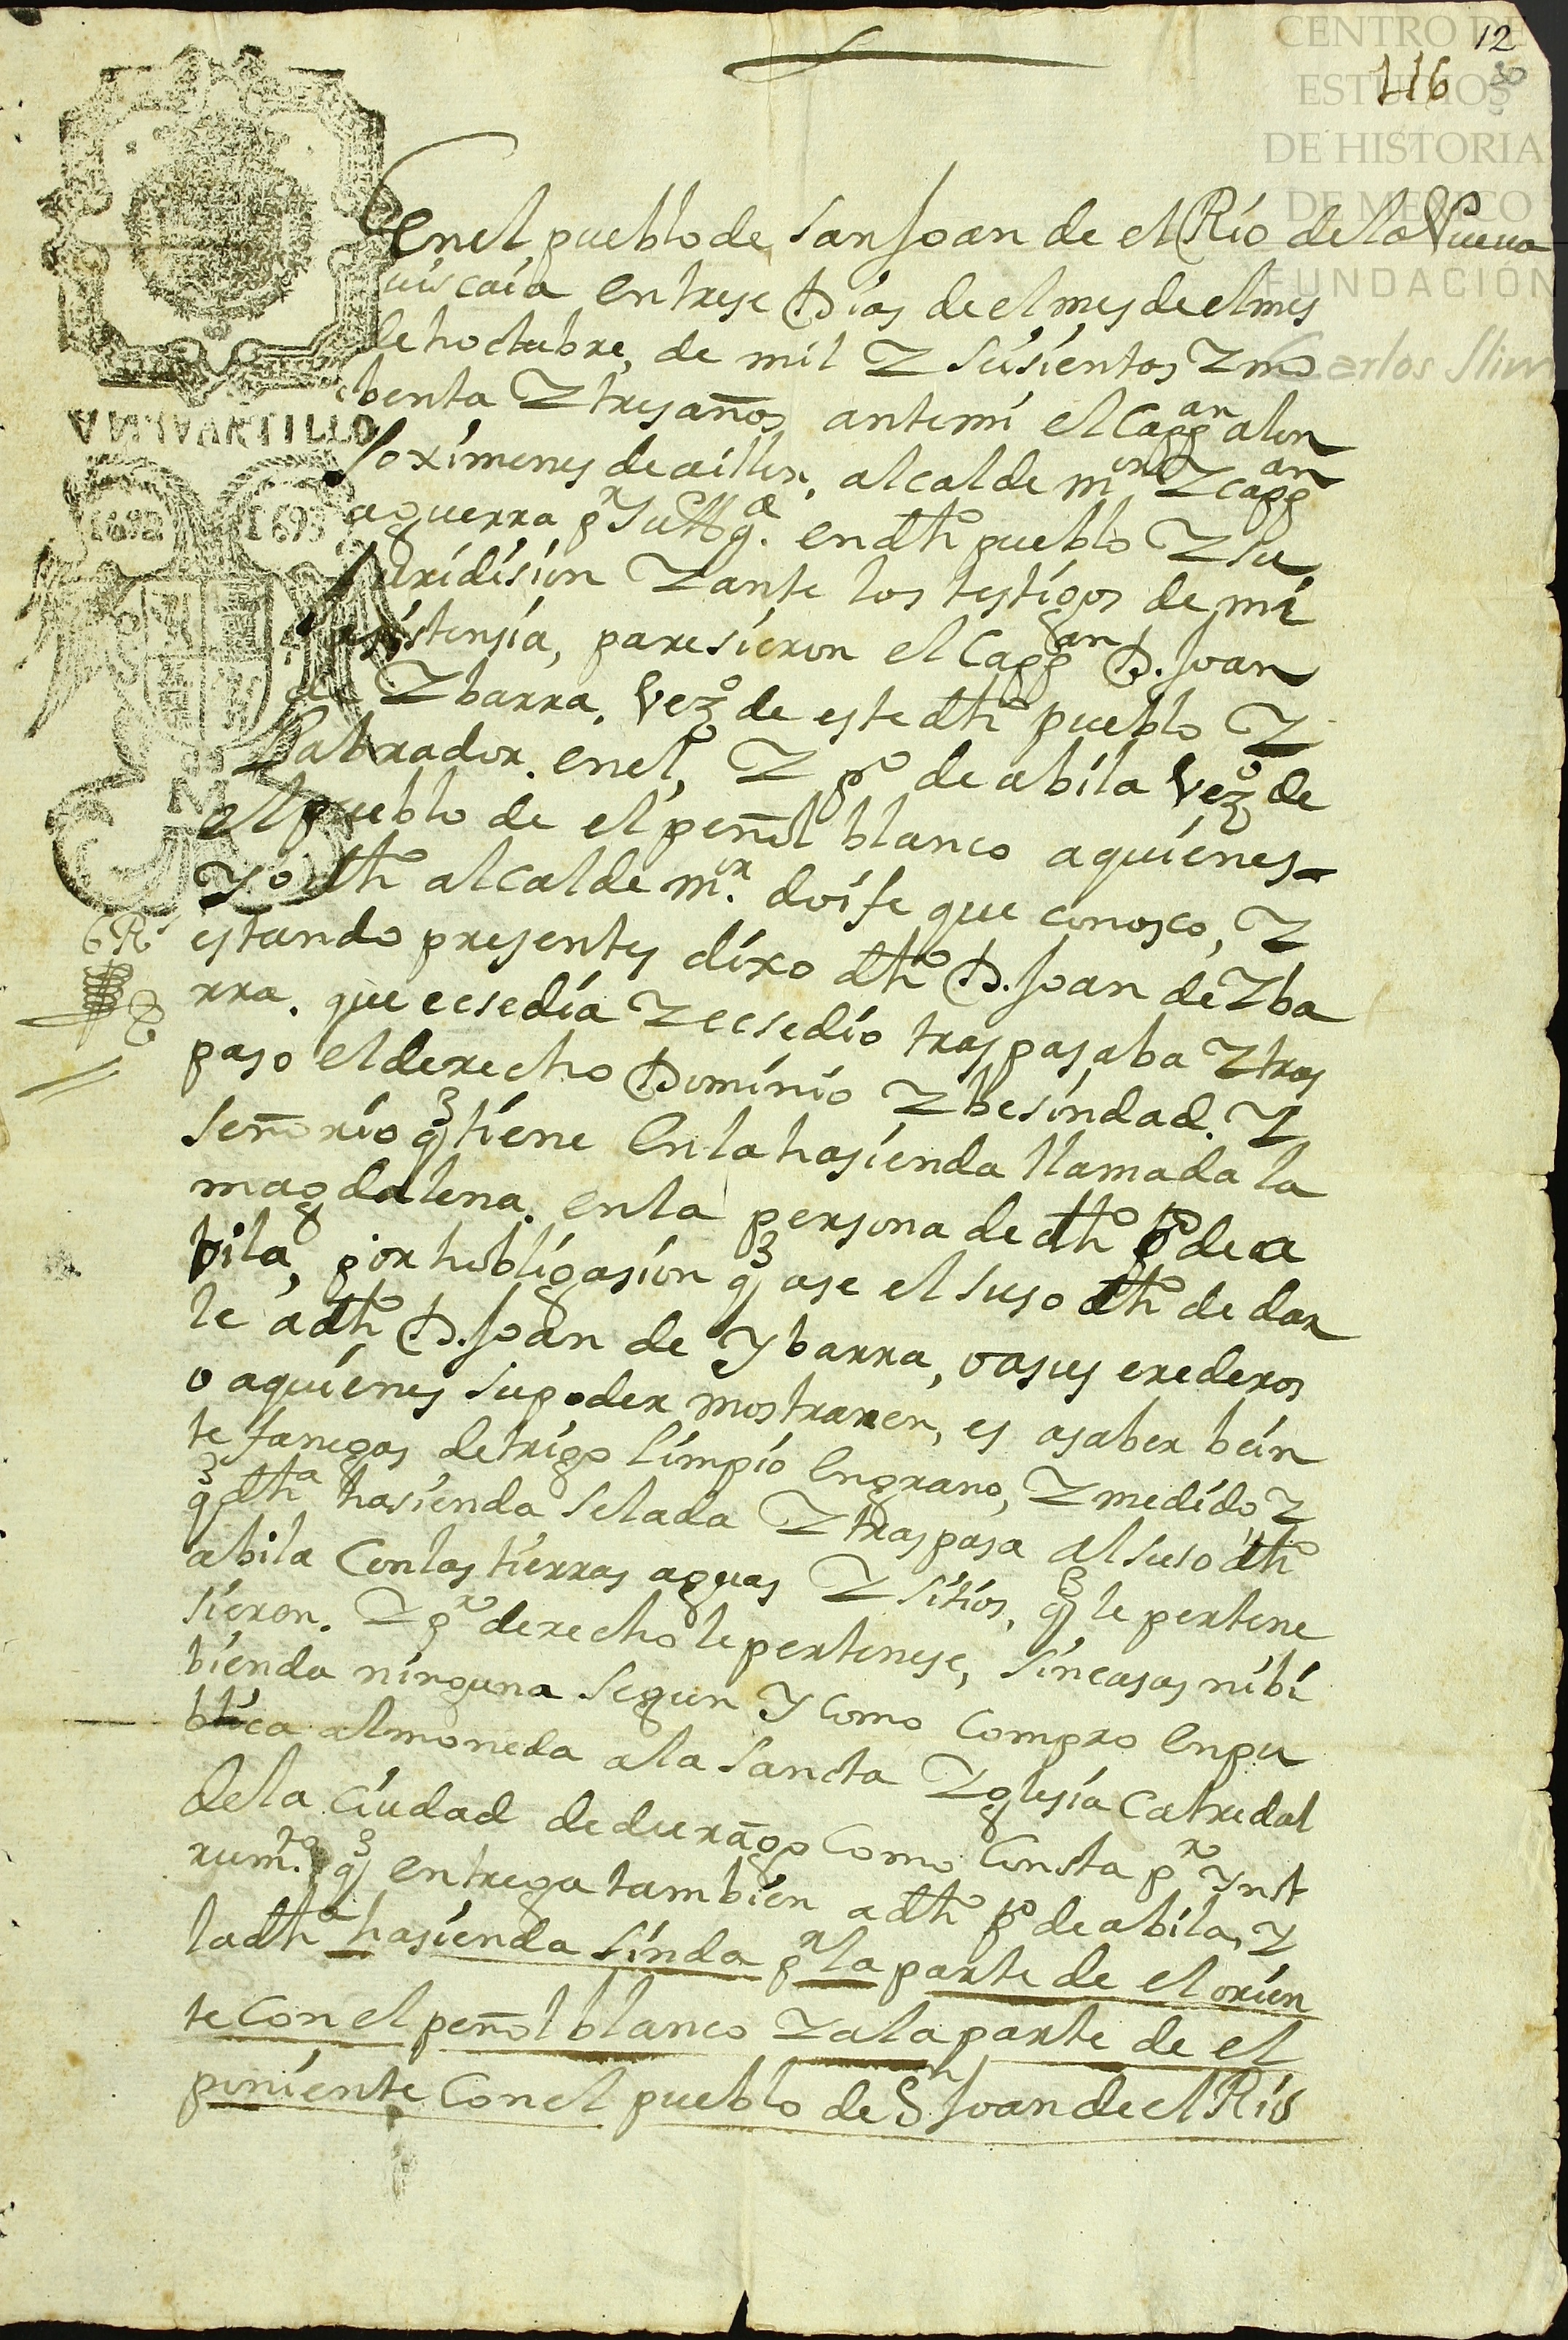 CENTRO DE
ESTUDIOS
DE HISTORIA
DE MEXICO
FUNDACIÓN
Carlos Slim
12
116
30
VN QVARTILLO
1692 1693
En el pueblo de San Joan de el Río de la Nueva
uiscaia en trese Dias de el mes de el mes
de hoctubre, de mil Y Seisientos Y no
benta Y tres años ante mi el Cappan alon
so ximenes de aillon, alcalde mor Y cappan
aguerra pr Su Mgd. en dho pueblo Y su
Juridision Y ante los testigos de mi
asistensia, paresieron el Cappan D. Joan
de Ybarra, Vezo de este dho pueblo Y
Labrador en el, Y po de abila Vezo de
el pueblo de el peñol blanco a quienes
Yo dho alcalde mor. doi fe que conosco, Y
estando presentes dixo dho D. Joan de Yba
rra. que ecsedia Y ecsedio traspasaba Y tras
paso el derecho Dominio Y besindad. Y
Señorio q tiene en la hasienda llamada la
magdalena. en la persona de dho po de a
bila, por hobligasion q ase el suso dho de dar
le a dho D. Joan de Ybarra, o a sus erederos
o a quienes su poder mostraren, es a saber bein
te fanegas de trigo limpio en grano, Y medido Y
q dha hasienda se la da Y traspasa al suso dho
abila con las tierras aguas Y sitios, q le pertene
sieron. Y pr derecho le pertenese, sin casas ni bi
bienda ninguna segun Y como compro en pu
blica almoneda a la Sancta Yglesia Catredal
de la Ciudad de durango como consta pr Ynst
rumto. q entrega tambien a dho po de abila, Y
la dha hasienda linda pr la parte de el orien
te con el peñol blanco Y a la parte de el
poniente con el pueblo de Sn Joan de el Río